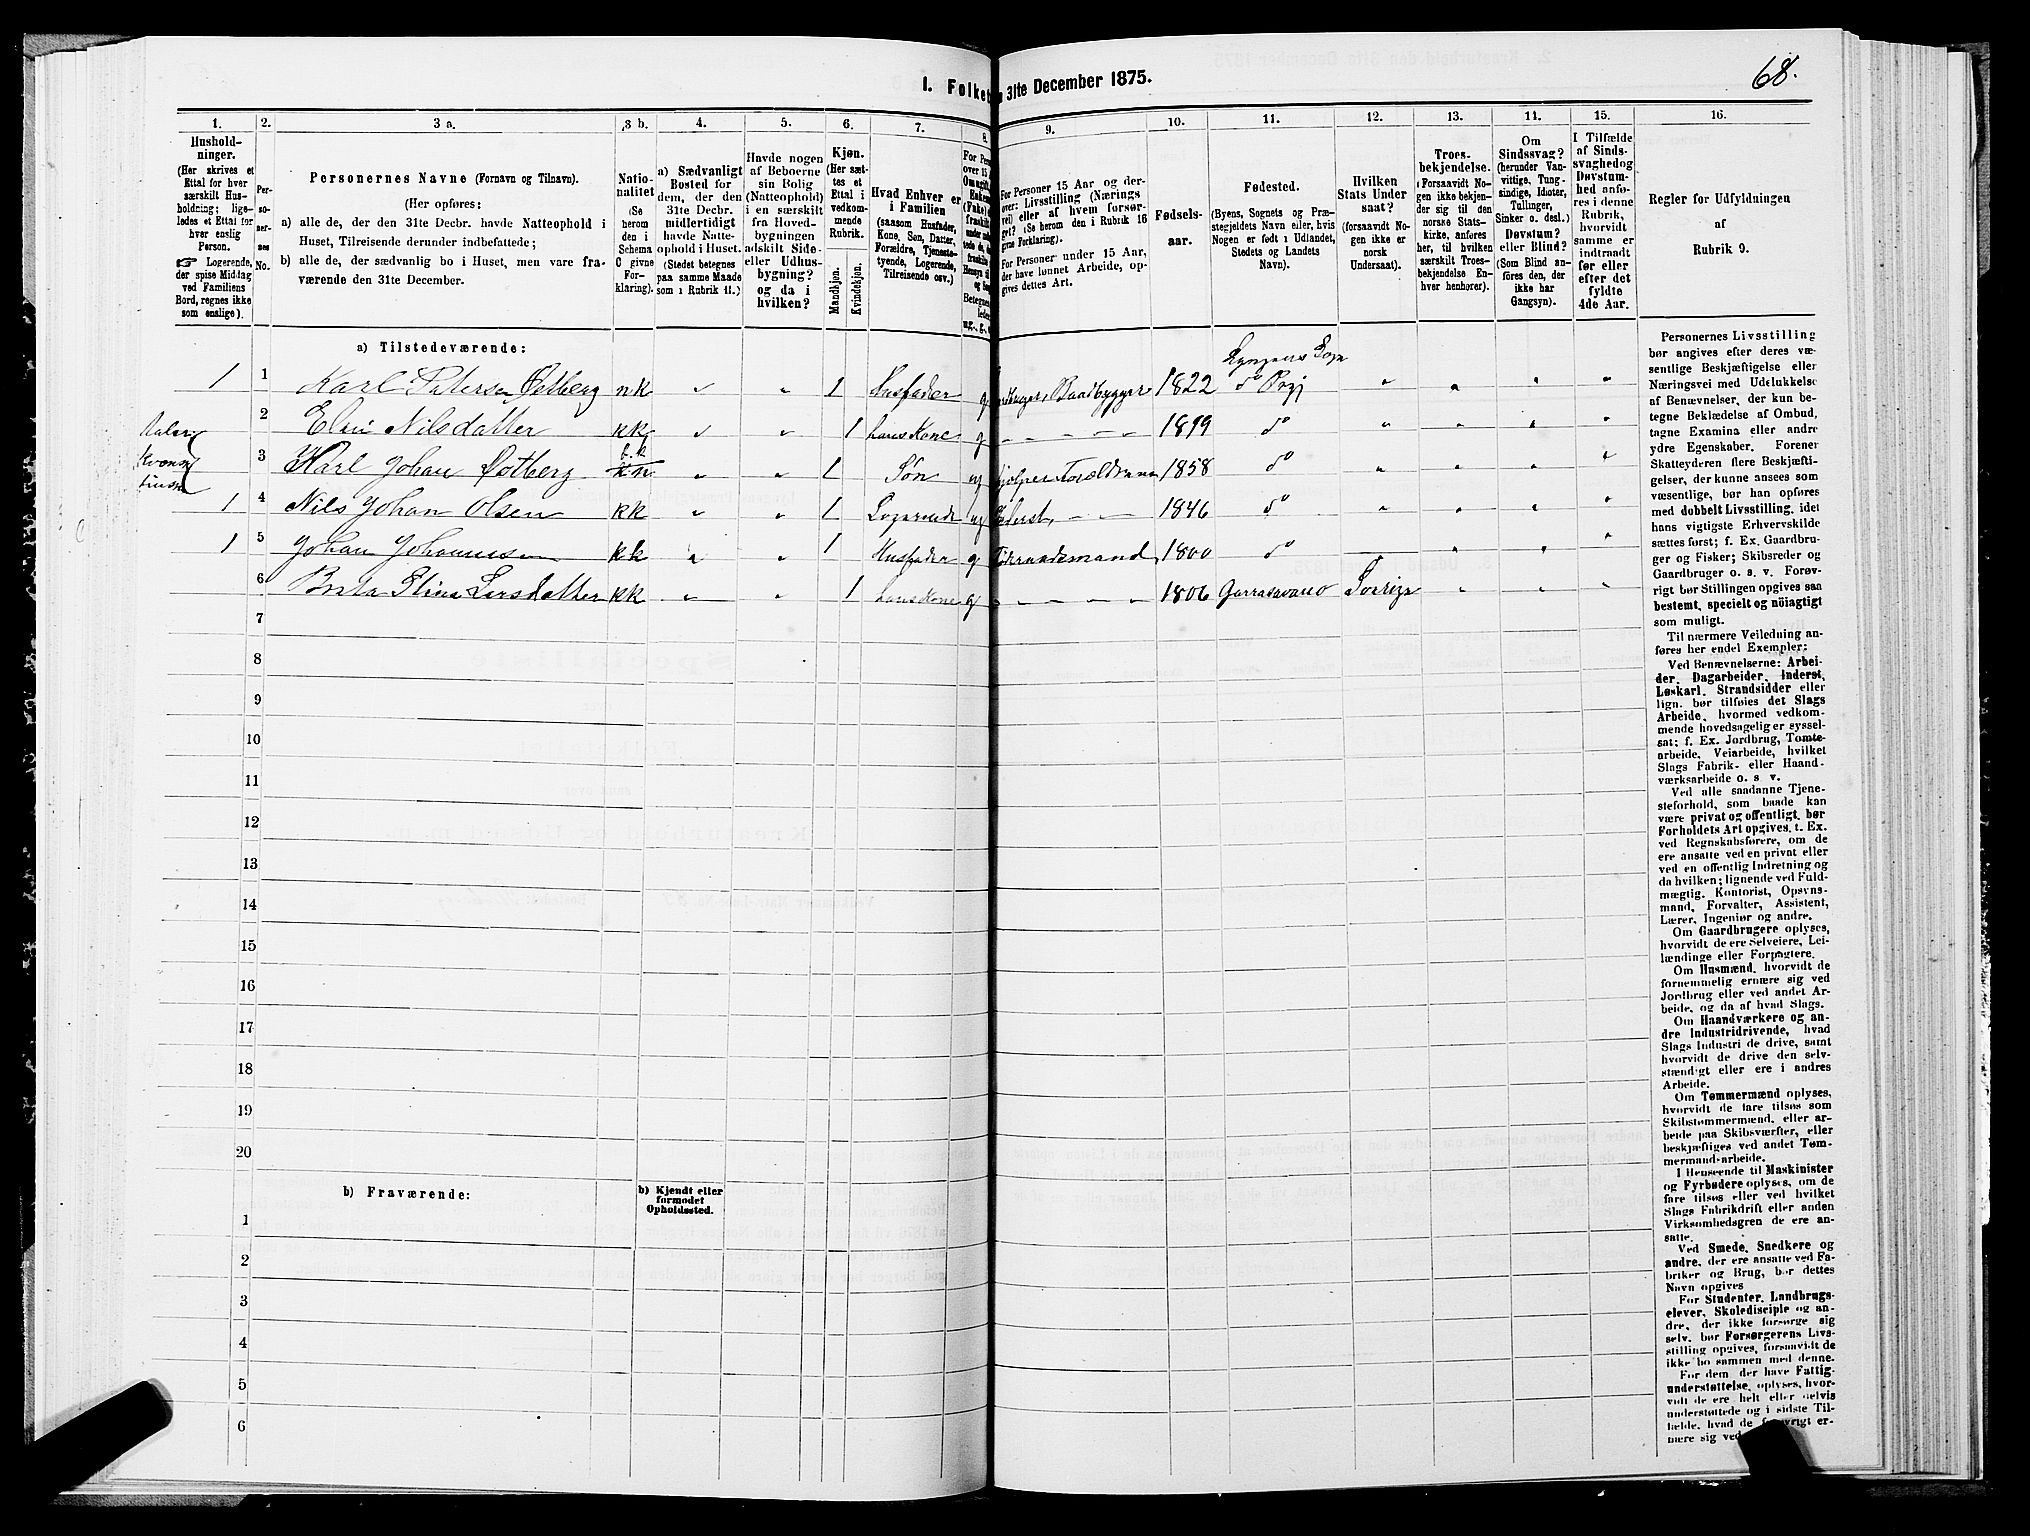 68.
I. Folket 31te December 1875.
1. 2. 3 a. 3 b. 4. 5. 6. 7. 8. 9. 10. 11. 12. 13. 14. 15. 16.
Hushold-
ninger.
(Her skrives et
Ettal for hver
særskilt Hus-
holdning; lige-
ledes et Ettal for
hver enslig
Person.
☞ Logerende,
der spise Middag
ved Familiens
Bord, regnes ikke
som enslige).
Per-
so-
ner-
nes
No.
Personernes Navne (Fornavn og Tilnavn).
(Her opføres:
a) alle de, der den 31te Decbr. havde Natteophold i
Huset, Tilreisende derunder indbefattede;
b) alle de, der sædvanlig bo i Huset, men vare fra-
værende den 31te December.
Natio-
nalitet
(Se
herom
den i
Schema
O givne
For-
klaring).
a) Sædvanligt
Bosted for
dem, der den
31te Decbr.
midlertidigt
havde Natte-
ophold i Huset.
(Stedet betegnes
paa samme Maade
som i Rubrik 11.)
Havde nogen
af Beboerne
sin Bolig
(Natteophold)
i en særskilt
fra Hoved-
bygningen
adskilt Side-
eller Udhus-
bygning?
og da i
hvilken?
Kjøn.
(Her sæt-
tes et
Ettal i
vedkom-
mende
Rubrik.
Mandkjøn.
Kvindekjøn.
Hvad Enhver er
i Familien
(saasom Husfader,
Kone, Søn, Datter,
Forældre, Tjeneste-
tyende, Logerende,
Tilreisende osv.)
For Personer 15 Aar og der-
over: Livsstilling (Nærings-
vei) eller af hvem forsør-
get? (Se herom den i Rubrik 16
givne Forklaring).
For Personer under 15 Aar,
der have lønnet Arbeide, op-
gives dettes Art.
Fødsels-
aar.
Fødested.
(Byens, Sognets og Præ-
stegjeldets Navn eller, hvis
Nogen er født i Udlandet,
Stedets og Landets
Navn).
Hvilken
Stats Under
saat?
(forsaavidt No-
gen ikke er
norsk
Undersaat).
Troes-
bekjendelse.
(Forsaavidt No-
gen ikke bekjen-
der sig til den
norske Stats-
kirke, anføres
her, til hvilken
særskilt Troes-
bekjendelse En-
hver henhører).
Om
Sindssvag?
(herunder Van-
vittige, Tung-
sindige, Idioter,
Tullinger,
Sinker o. desl.)
Døvstum?
eller Blind?
(Som Blind an-
føres den, der
ikke har
Gangsyn).
I Tilfælde
af Sinds-
svaghed og
Døvstum-
hed anfø-
res i denne
Rubrik,
hvorvidt
samme er
indtraadt
før eller
efter det
fyldte
4de Aar.
Regler for Udfyldningen
af
Rubrik 9.
a) Tilstedeværende:
Lyngens Sogn
1 1 Karl Petersen Østberg nk 1 Husfader g Baadbygger 1822 do Prgj
2 Elen Nilsdatter kk 1 hans Kone g 1899 do
k.k
3 Karl Johan Østberg 1 Søn ug hjelper Forældrene 1858 do
1 4 Nils Johan Olsen kk 1 Logerende ug Inderst 1846 do
1 5 Johan Johannesen kk 1 Husfader g 1800 do
6 Brita Stina Larsdatter kk 1 hans Kone g 1806 Garrasavano Sverige
7
8
9
10
11
12
13
14
15
16
17
18
19
20
b) Fraværende:
b) Kjendt eller
formodet
Opholdssted.
1
2
3
4
5
6
Personernes Livsstilling
bør angives efter deres væ-
sentlige Beskjæftigelse eller
Næringsvei med Udelukkelse
af Benævnelser, der kun be-
tegne Beklædelse af Ombud,
tagne Examina eller andre
ydre Egenskaber. Forener
Skatteyderen flere Beskjæfti-
gelser, der kunne ansees som
væsentlige, bør han opføres
med dobbelt Livsstilling, idet
hans vigtigste Erhvervskilde
sættes først; f. Ex. Gaardbru-
ger og Fisker; Skibsreder og
Gaardbruger o. s. v. Forøv-
rigt bør Stillingen opgives saa
bestemt, specielt og nöiagtigt
som muligt.
Til nærmere Veiledning an-
føres her endel Exempler:
Ved Benævnelserne: Arbei-
der, Dagarbeider, Inderst,
Løskarl, Strandsidder eller
lign. bør tilføies det Slags
Arbeide, hvormed vedkom-
mende hovedsagelig er syssel-
sat; f. Ex. Jordbrug, Tomte-
arbeide, Veiarbeide, hvilket
Slags Fabrik- eller Haand-
værksarbeide o. s. v.
Ved alle saadanne Tjene-
steforhold, som baade kan
være private og offentligt, bør
Forholdets Art opgives, t. Ex.
ved Regnskabsførere, om de
ere ansatte ved en privat eller
ved en offentlig Indretning og
da hvilken; lignende ved Fuld-
mægtig, Kontorist, Opsyns-
mand, Forvalter, Assistent,
Lærer, Ingeniør og andre.
Om Gaardbrugere oplyses,
hvorvidt de ere Selveiere, Lei-
lændinge eller Forpagtere.
Om Husmænd, hvorvidt de
fornemmelig ernære sig ved
Jordbrug eller ved andet Ar-
beide, og da af hvad Slags.
Om Haandværkere og an-
dre Industridrivende, hvad
Slags Industri de drive, samt
hvorvidt de drive den selv-
stændigt eller ere i andres
Arbeide.
Om Tømmermænd oplyses,
hvorvidt de fare tilsøs som
Skibstømmermænd, eller ar-
beide paa Skibsværfter, eller
beskjæftiges ved andet Tøm-
mermandsarbeide.
I Henseende til Maskinister
og Fyrbødere oplyses, om de
fare tilsøs eller ved hvilket
Slags Fabrikdrift eller anden
Virksomhedsgren de ere an-
satte.
Ved Smede, Snedkere og
andre, der ere ansatte ved Fa-
briker og Brug, bør dettes
Navn opgives
For Studenter, Landbrugs-
elever, Skoledisciple og an-
dre, der ikke forsørge sig
selv, bør Forsørgerens Livs-
stilling opgives, forsaavidt de
ikke bo sammen med denne.
For dem, der have Fattig-
understøttelse, oplyses, hvor-
vidt de ere helt eller delvis
understøttede og i sidste Til-
fælde, hvad de forøvrigt er-
nære sig ved